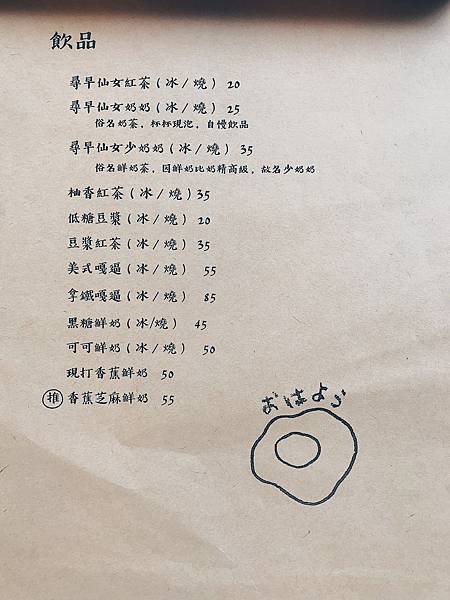 飲品
尋早仙女紅茶(冰/燒) 20
尋早仙女奶奶(冰/燒) 25
俗名奶茶，杯杯現泡，自慢飲品
尋早仙女少奶奶(冰/燒) 35
俗名鮮奶茶，因鮮奶比奶精高級，故名少奶奶
柚香紅茶(冰/燒)35
低糖豆漿(冰/燒) 20
豆漿紅茶(冰/燒) 35
美式嘎逼(冰/燒) 55
拿鐵嘎逼(冰/燒) 85
黑糖鮮奶(冰/燒) 45
可可鮮奶(冰/燒) 50
現打香蕉鮮奶 50
推 香蕉芝麻鮮奶 55
おはよう